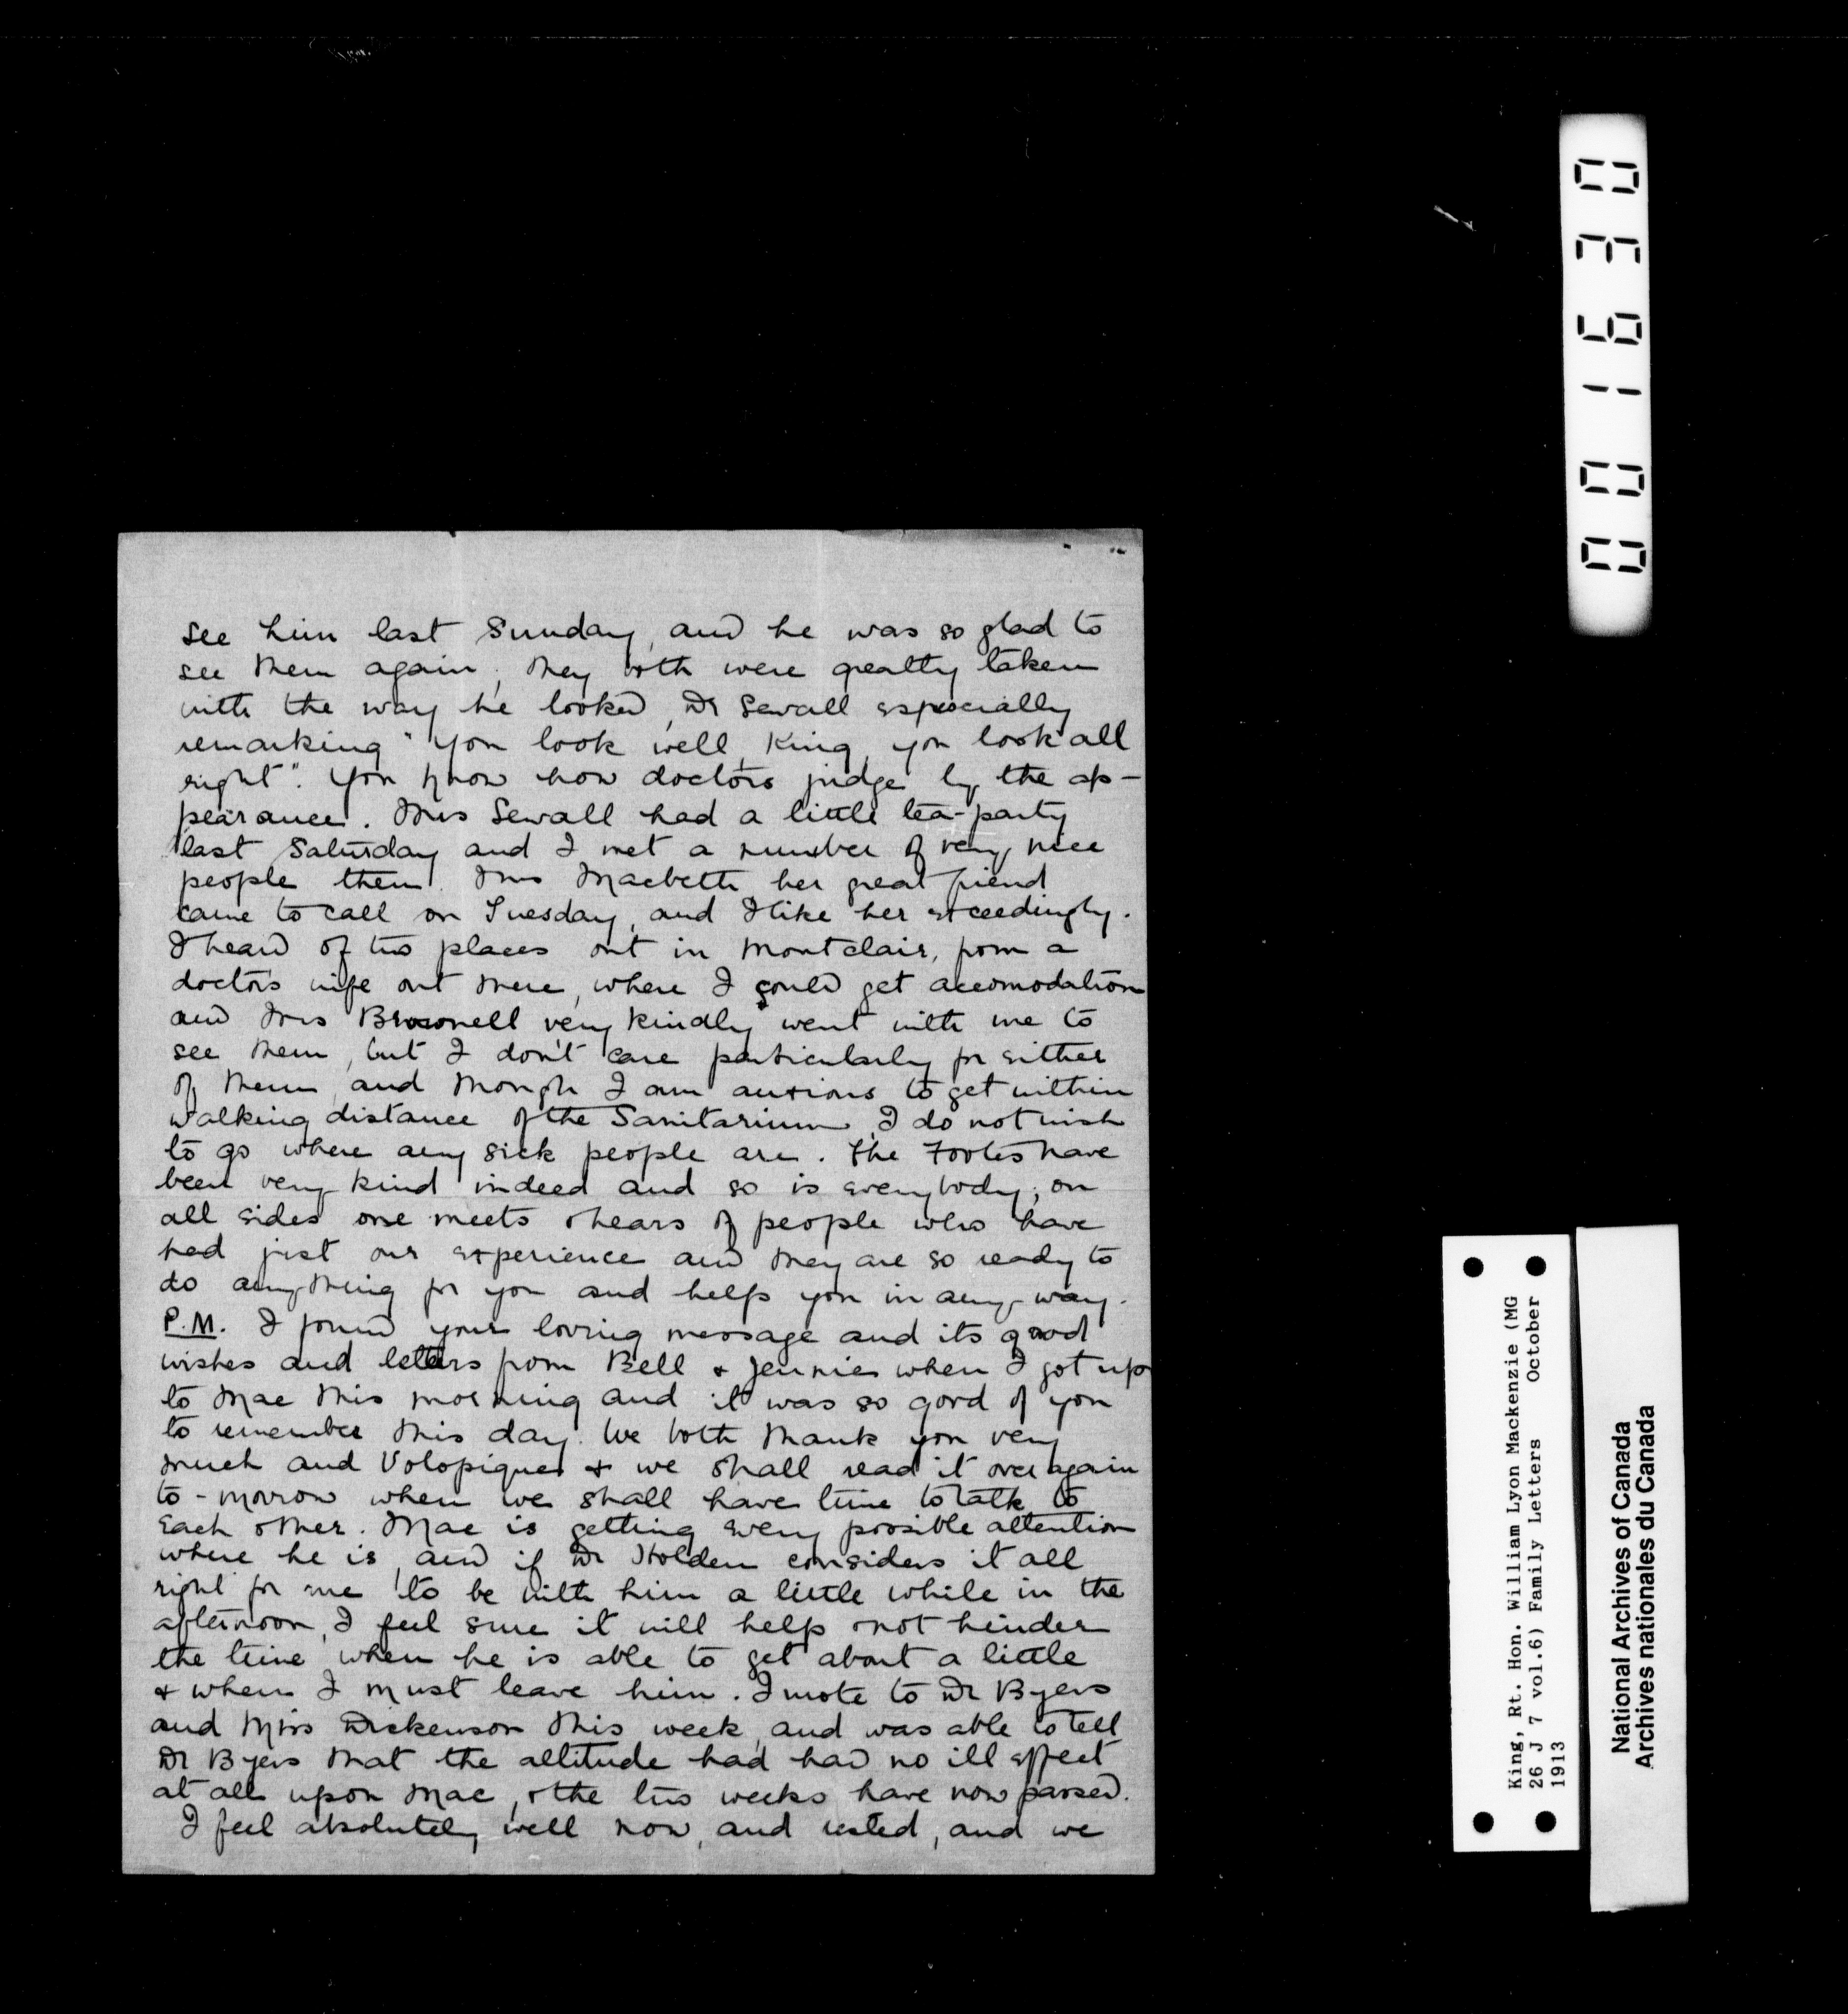 see him last Sunday, and he was so glad to
see them again, they both were greatly taken
with the way he looked, Dr Sewall especially
remarking "you look well, King, you look all
right". You know how doctors judge by the ap-
pearance. Mrs Sewall had a little tea-party
last Saturday and I met a number of very nice
people then. Mrs Macbeth her great friend
came to call on Tuesday, and I like her exceedingly.
I heard of two places out in Montclair, from a
doctor's wife out there, where I could get accomodation
and Mrs Brownell very kindly went with me to
see them, but I don't care particularly for either
of them and though I am anxious to get within
walking distance of the Sanitarium, I do not wish
to go where any sick people are. The Footes have
been very kind indeed and so is everybody; on
all sides one meets & hears of people who have
had just our experience and they are so ready to
do anything for you and help you in any way.
P.M. I found your loving message and its good
wishes and letters from Bell & Jennie when I got up
to Mac this morning and it was so good of you
to remember this day. We both thank you very
much and Volopique & we shall read it over again
to-morrow when we shall have time to talk to
each other. Mac is getting every possible attention
where he is, and if Dr Holden considers it all
right for me to be with him a little while in the
afternoon, I feel sure it will help & not hinder
the time when he is able to get about a little
& when I must leave him. I wrote to Dr Byers
and Miss Dickenson this week, and was able to tell
Dr Byers that the altitude had had no ill effect
at all upon Mac, & the two weeks have now passed.
I feel absolutely well now, and rested, and we
001630
King, Rt. Hon. William Lyon Mackenzie (MG
26 J 7 vol.6) Family Letters October
1913
National Archives of Canada
Archives nationales du Canada